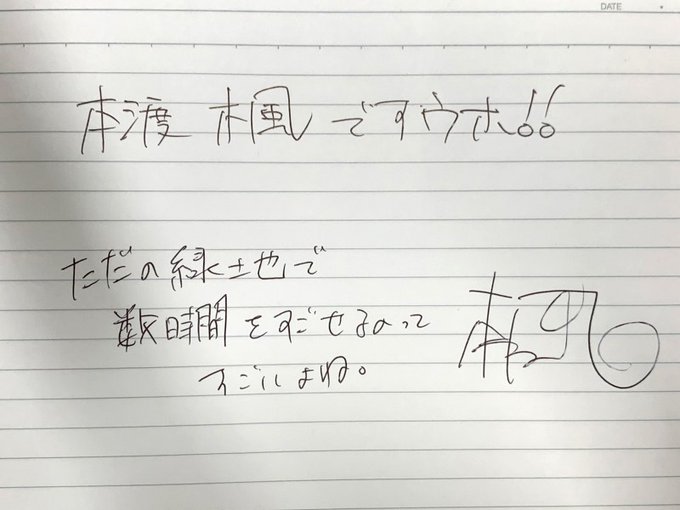 DATE
本渡 楓ですウホ!!
ただの緑土也で
数時間をすごせるのって
スごいよね。